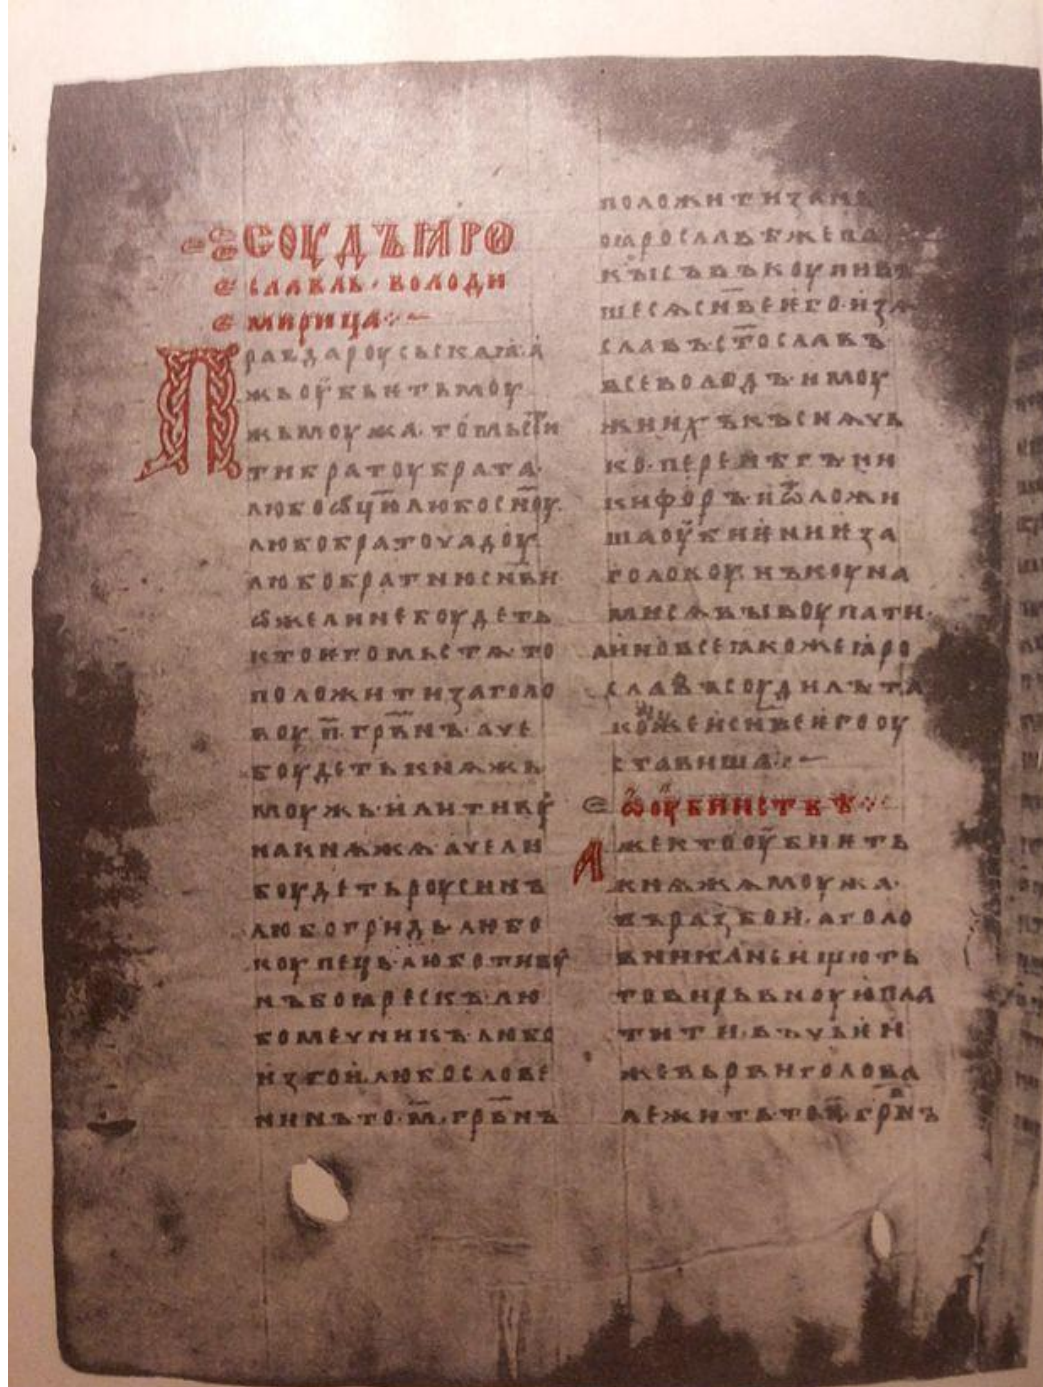 СОУДЪ ꙖРО
СЛАВЛЬ · ВОЛОДИ
МИРИЦА
Правдароусьскаꙗ · а
жьоубьѥтьмоу
жьмоужа · томьсти
тибратоубрата ·
любоѡц҃ю любосн҃оу ·
любобраточадоу ·
любобратнюсн҃ви
ѡжелинебоудеть
ктоѥгомьстѧ · то
положитизаголо
воу · п҃ · грв҃нъ · аче
боудетькнѧжь
моужь · илитиву
накнѧжѧ · ачели
боудетьроусинъ
любогридь · любо
коупець · люботиву
нъбоꙗрескъ · лю
бомечникъ · любо
изгои · любослове
нинъто · м҃ · грв҃нъ
положитиза
оꙗрославѣже
кысъвъкоупивъ
шесѧсн҃веѥго · изѧ
славъ · ст҃ославъ
всеволодъ · имоу
жиихъкъснѧчь
ко · перенѣгъни
кифоръ · иѿложи
шаоубиѥниѥза
головоу · нъкоуна
мисѧвыкоупати ·
аиновсеꙗкожеꙗро
славъсоудилъта
кожеисн҃веѥгооу
ставиша
ѡоубииствѣ
Ажектооубиѥть
кнѧжѧмоужа ·
въразбои · аголо
вниканеищють
товирьвноуюпла
тити · въчьѥи
жевьрвиголова
лежитьтоп҃ · грв҃нъ